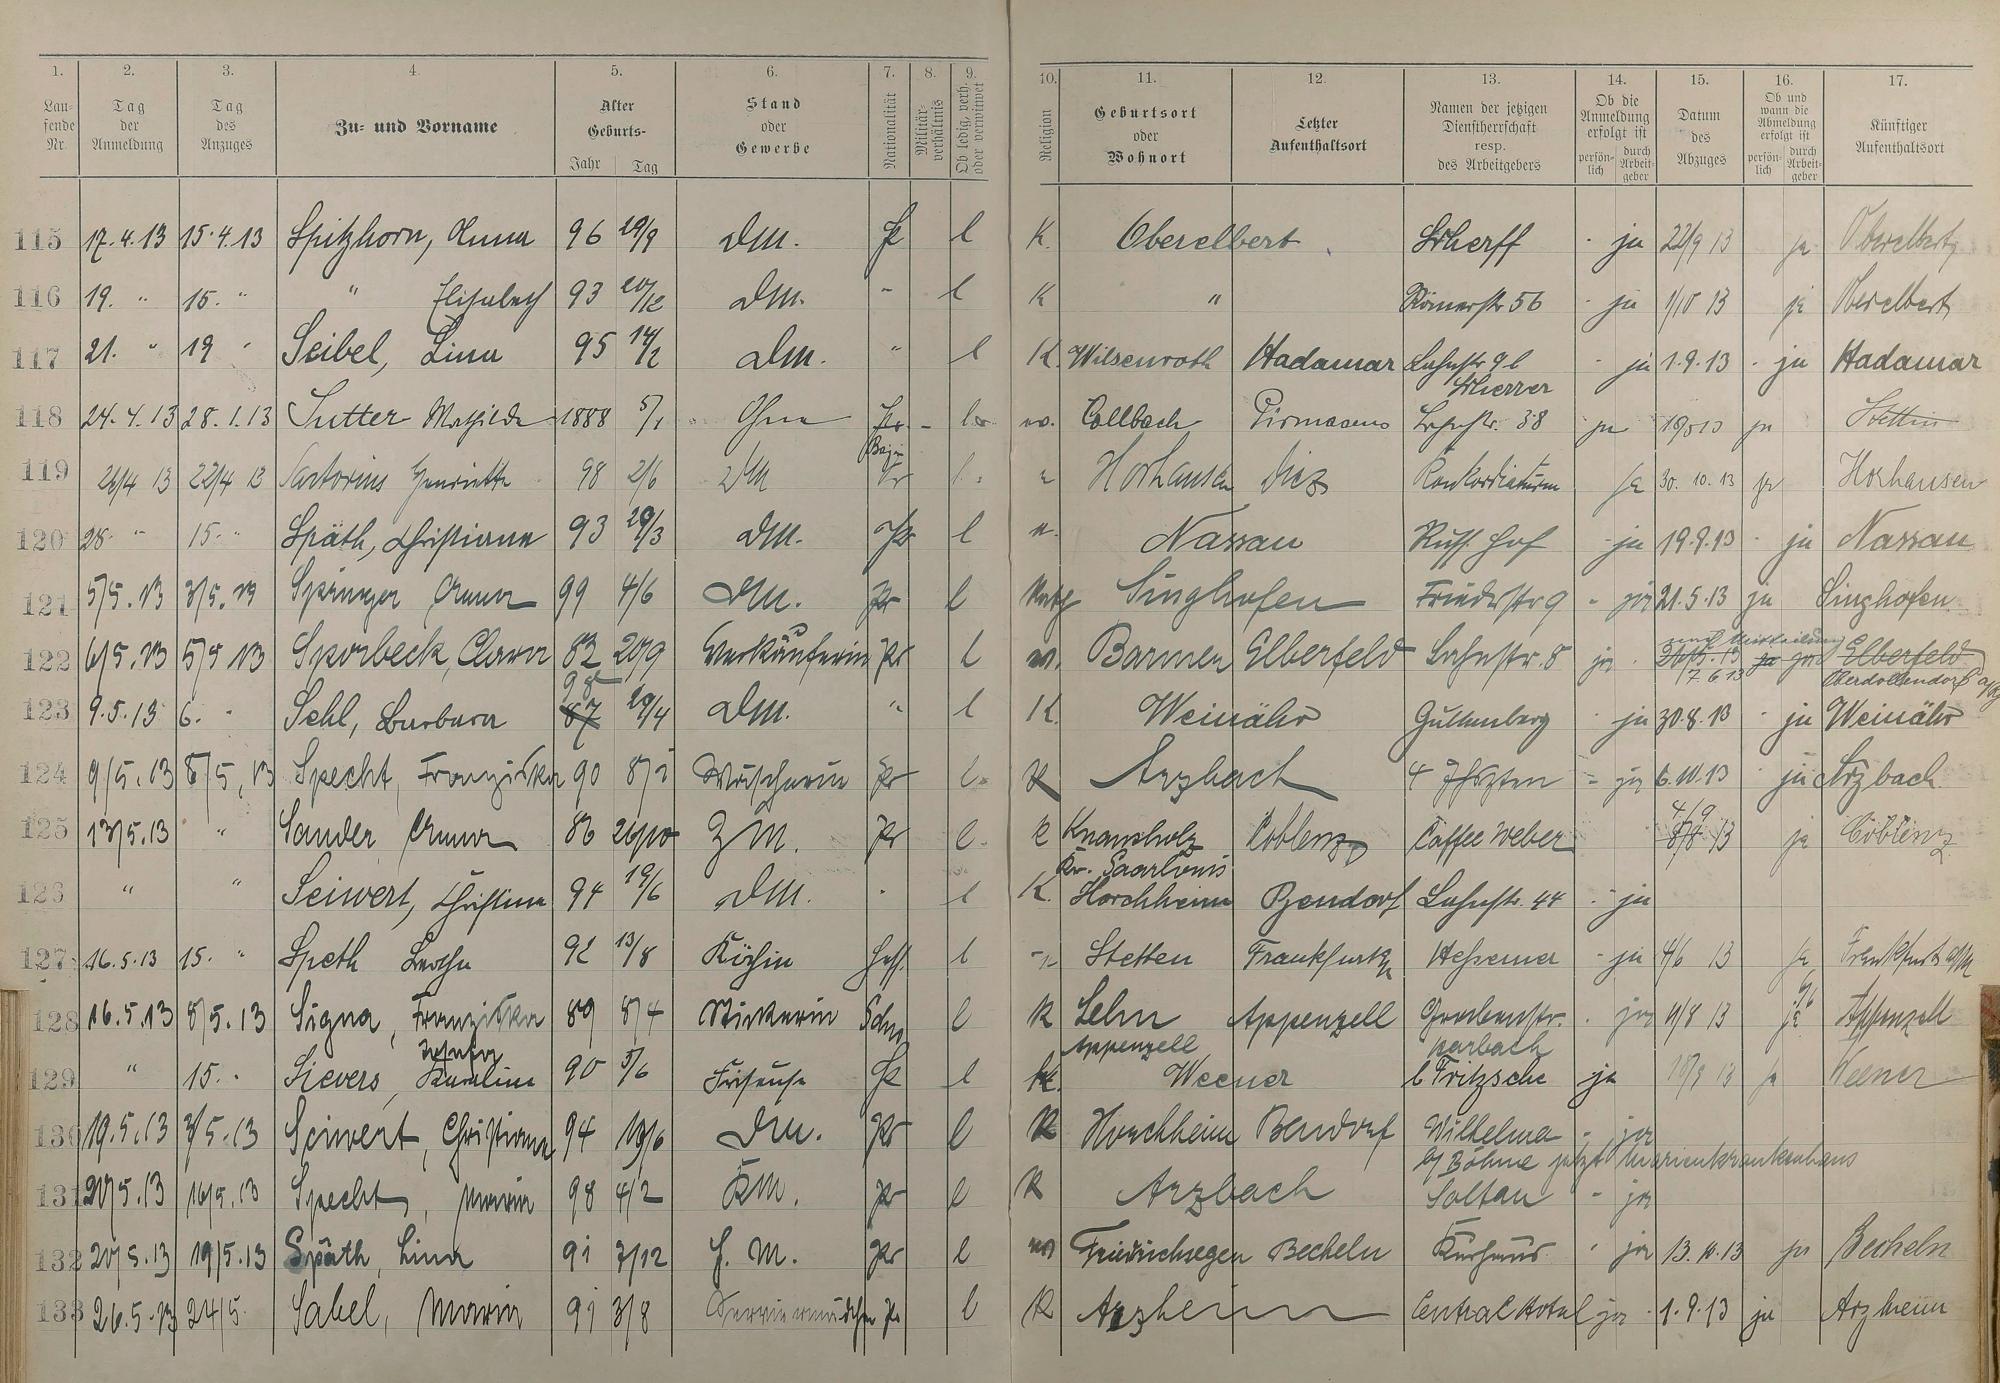 1. 2. 3. 4. 5. 6. 7. 8. 9. 10. 11. 12. 13. 14. 15. 16. 17.
Lau-
fende
Nr.
Tag
der
Anmeldung
Tag
des
Anzuges
Zu- und Vorname
Alter
Geburts-
Jahr Tag
Stand
oder
Gewerbe
Nationalität
Militär-
verhältnis
Ob ledig, verh.
oder verwitwet
Religion
Geburtsort
oder
Wohnort
Letzter
Aufenthaltsort
Namen der jetzigen
Dienstherrschaft
resp.
des Arbeitgebers
Ob die
Anmeldung
erfolgt ist
persön-
lich
durch
Arbeit-
geber
Datum
des
Abzuges
Ob und
wann die
Abmeldung
erfolgt ist
persön-
lich
durch
Arbeit-
geber
Künftiger
Aufenthaltsort
115 17.4.13 15.4.13 Spitzhorn, Anna 96 29/9 DM. l K. Oberelbert Scherff - ja 22/9 13 ja Oberelbert
116 19. " 15. " " Elisabeth 93 20/12 DM. " l K " Römerstr. 56 - ja 1/10 13 ja Oberelbert
117 21. " 19 " Seibel, Lina 95 14/2 DM. " l K. Wilsenroth Hadamar Lahnstr. 9 - ja 1.9.13 - ja Hadamar
118 24.4.13 28.1.13 Sutter Mathilde 1888 5/1 Ohne Collbach Pirmasens Lahnstr. 38 ja ja Stettin
119 26/4 13 22/4 13 Sartorius Henriette 98 2/6 DM l. Horhausen Diez ja 30.10.13 ja Horhausen
120 28. " 15. " Späth, Christiane 93 29/3 DM. Pr l Nassau Russ. Hof - ja 19.9.13 - ja Nassau
121 5/5.13 3/5.13 Springer Anna 99 4/6 DM. Pr l Singhofen Friedrstr 9 - ja 21.5.13 ja Singhofen
122 6/5.13 5/5 13 Sporbeck, Clara 82 20/9 Verkäuferin Pr l Barmen Elberfeld Lahnstr. 8 ja 7.6.13 ja Elberfeld
Oberdollendorf a/Rh
123 9.5.13 6. " Sehl, Barbara 98 87 29/4 DM. " l K. Weinähr Guttenberg - ja 30.8.13 - ja Weinähr
124 9/5.13 8/5.13 Specht, Franziska 90 Wäscherin Pr l. K Arzbach 4 - ja 6.10.13 - ja Arzbach
125 13/5.13 " Sander Anna 86 26/10 ZM. Pr l. K Coblenz Caffee Weber 4/9 8/8 13 ja Coblenz
Kr. Saarlouis
126 " " Seiwert, Christine 94 19/6 DM. " l K. Horchheim Bendorf Lahnstr. 44 - ja
127 16.5.13 15. " Speth Bertha 92 13/8 Köchin Hess. l Stetten Frankfurt Hessemer - ja 4/6 13 ja Frankfurt a/M
128 16.5.13 8/5.13 Signa, Franziska 89 8/4 Stickerin Schw l K Lehn Appenzell Grabenstr. - ja 11/8 13 ja Appenzell
Appenzell
129 " 15. " Sievers, 90 5/6 Friseuse Pr l Weener b Fritzsche ja ja Weener
130 19.5.13 3/5.13 Seiwert, Christiane 94 19/6 DM. Pr l K Horchheim Bendorf Wilhelma - ja
b/ Böhme jetzt Marienkrankenhaus
131 20/5.13 16/5.13 Specht, Maria 98 4/2 KM. Pr l K Arzbach Soltau - ja
132 20/5.13 19/5.13 Späth, Lina 91 7/12 H. M. Pr l Friedrichsegen Becheln Kurhaus - ja 13.10.13 ja Becheln
133 26.5.13 24/5. Sabel, Maria 91 3/8 Serviermädchen Pr l K Arzheim Central Hotel ja - 1.9.13 ja Arzheim